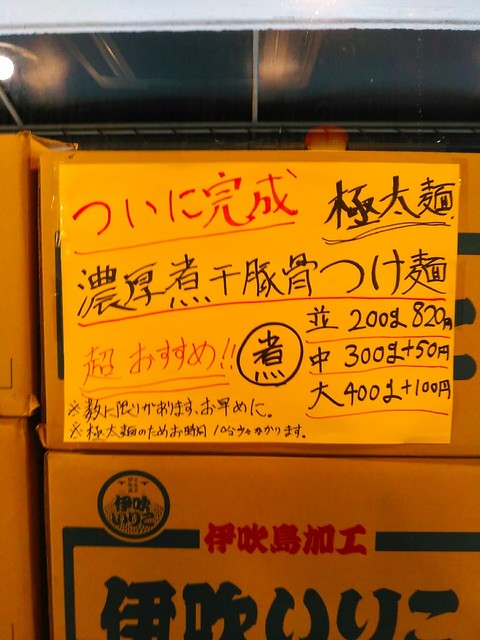 ついに完成
極太麺
濃厚煮干豚骨つけ麺
超おすすめ!!
煮
並 200g 820円
中 300g+50円
大 400g+100円
※数に限りがあります、お早めに。
※極太麺のためお時間10分少々かかります。
伊吹
いりこ
伊吹島加工
伊吹いりこ